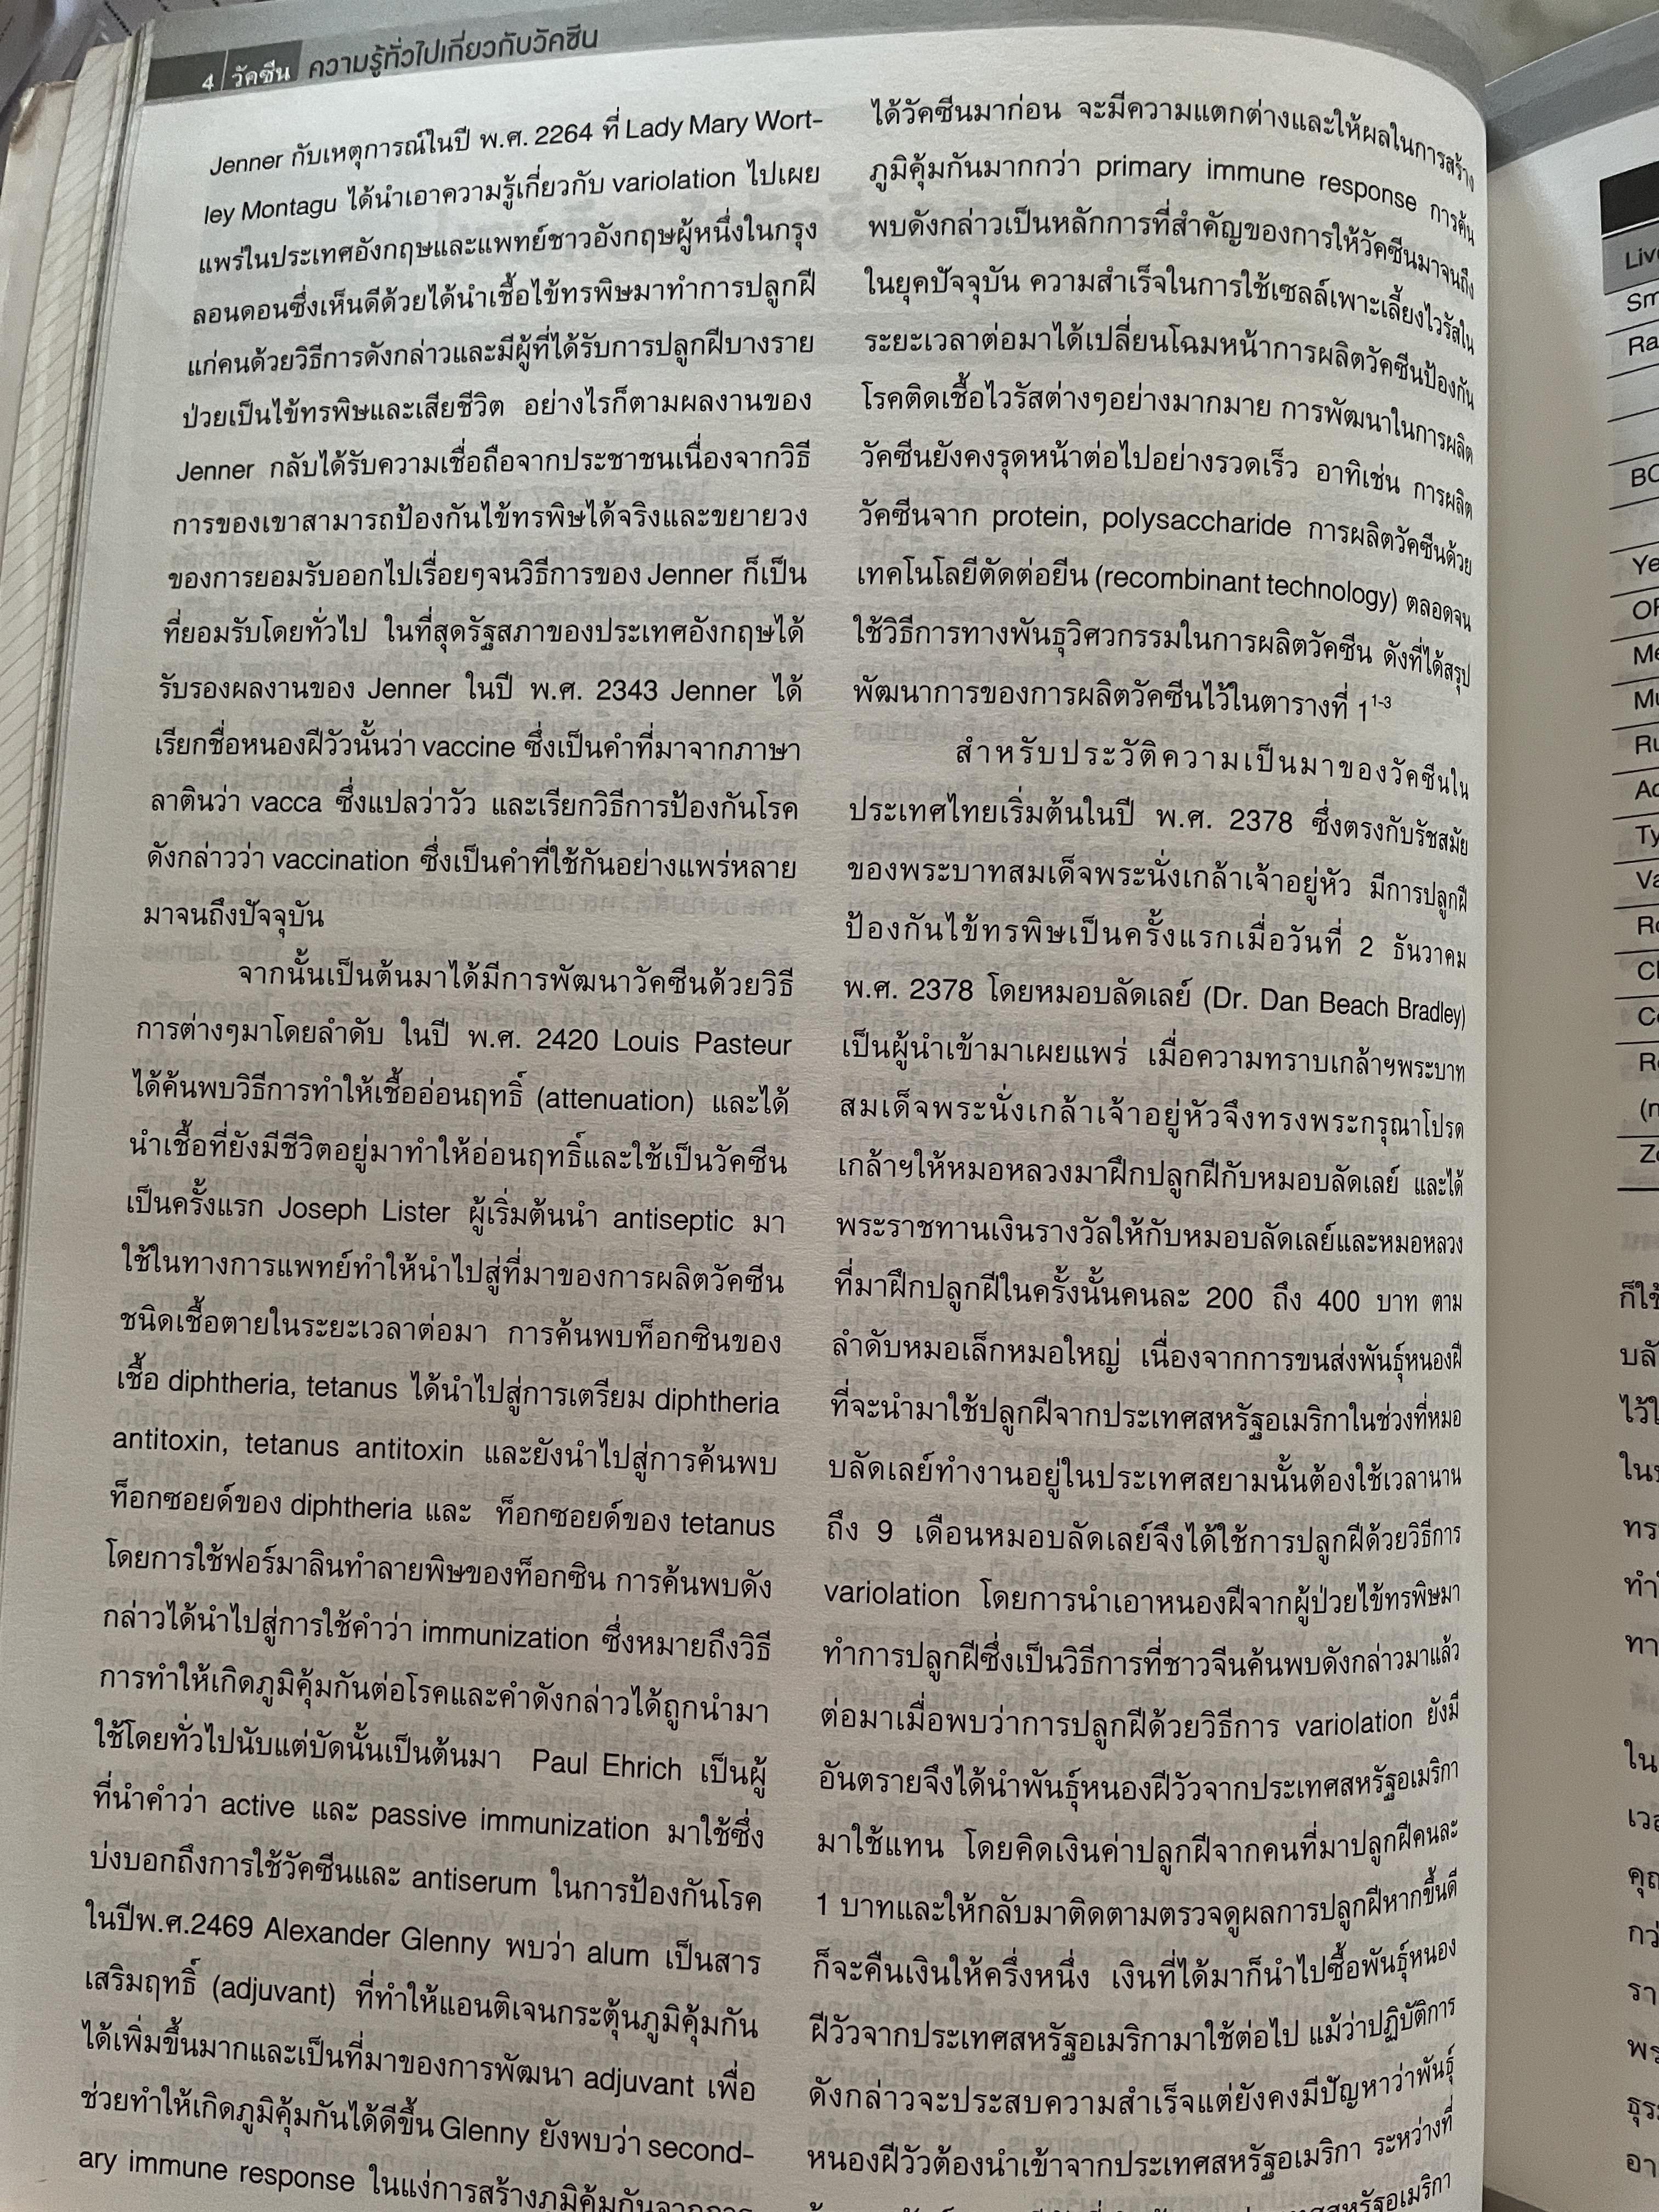 4 วัคซีน ความรู้ทั่วไปเกี่ยวกับวัคซีน
Jenner กับเหตุการณ์ในปี พ.ศ. 2264 ที่ Lady Mary Wort-
ley Montagu ได้นำเอาความรู้เกี่ยวกับ variolation ไปเผย
แพร่ในประเทศอังกฤษและแพทย์ชาวอังกฤษผู้หนึ่งในกรุง
ลอนดอนซึ่งเห็นดีด้วยได้นำเชื้อไข้ทรพิษมาทำการปลูกฝี
แก่คนด้วยวิธีการดังกล่าวและมีผู้ที่ได้รับการปลูกฝีบางราย
ป่วยเป็นไข้ทรพิษและเสียชีวิต อย่างไรก็ตามผลงานของ
Jenner กลับได้รับความเชื่อถือจากประชาชนเนื่องจากวิธี
การของเขาสามารถป้องกันไข้ทรพิษได้จริงและขยายวง
ของการยอมรับออกไปเรื่อยๆจนวิธีการของ Jenner ก็เป็น
ที่ยอมรับโดยทั่วไป ในที่สุดรัฐสภาของประเทศอังกฤษได้
รับรองผลงานของ Jenner ในปี พ.ศ. 2343 Jenner ได้
เรียกชื่อหนองฝีวัวนั้นว่า vaccine ซึ่งเป็นคำที่มาจากภาษา
ลาตินว่า vacca ซึ่งแปลว่าวัว และเรียกวิธีการป้องกันโรค
ดังกล่าวว่า vaccination ซึ่งเป็นคำที่ใช้กันอย่างแพร่หลาย
มาจนถึงปัจจุบัน
จากนั้นเป็นต้นมาได้มีการพัฒนาวัคซีนด้วยวิธี
การต่างๆมาโดยลำดับ ในปี พ.ศ. 2420 Louis Pasteur
ได้ค้นพบวิธีการทำให้เชื้ออ่อนฤทธิ์ (attenuation) และได้
นำเชื้อที่ยังมีชีวิตอยู่มาทำให้อ่อนฤทธิ์และใช้เป็นวัคซีน
เป็นครั้งแรก Joseph Lister ผู้เริ่มต้นนำ antiseptic มา
ใช้ในทางการแพทย์ทำให้นำไปสู่ที่มาของการผลิตวัคซีน
ชนิดเชื้อตายในระยะเวลาต่อมา การค้นพบท็อกซินของ
เชื้อ diphtheria, tetanus ได้นำไปสู่การเตรียม diphtheria
antitoxin, tetanus antitoxin และยังนำไปสู่การค้นพบ
ท็อกซอยด์ของ diphtheria และ ท็อกซอยด์ของ tetanus
โดยการใช้ฟอร์มาลินทำลายพิษของท็อกซิน การค้นพบดัง
กล่าวได้นำไปสู่การใช้คำว่า immunization ซึ่งหมายถึงวิธี
การทำให้เกิดภูมิคุ้มกันต่อโรคและคำดังกล่าวได้ถูกนำมา
ใช้โดยทั่วไปนับแต่บัดนั้นเป็นต้นมา Paul Ehrich เป็นผู้
ที่นำคำว่า active และ passive immunization มาใช้ซึ่ง
บ่งบอกถึงการใช้วัคซีนและ antiserum ในการป้องกันโรค
ในปีพ.ศ.2469 Alexander Glenny พบว่า alum เป็นสาร
เสริมฤทธิ์ (adjuvant) ที่ทำให้แอนติเจนกระตุ้นภูมิคุ้มกัน
ได้เพิ่มขึ้นมากและเป็นที่มาของการพัฒนา adjuvant เพื่อ
ช่วยทำให้เกิดภูมิคุ้มกันได้ดีขึ้น Glenny ยังพบว่า second-
ary immune response ในแง่การสร้างภูมิคุ้มกันจากการ
ได้วัคซีนมาก่อน จะมีความแตกต่างและให้ผลในการสร้าง
ภูมิคุ้มกันมากกว่า primary immune response การค้น
พบดังกล่าวเป็นหลักการที่สำคัญของการให้วัคซีนมาจนถึง
ในยุคปัจจุบัน ความสำเร็จในการใช้เซลล์เพาะเลี้ยงไวรัสใน
ระยะเวลาต่อมาได้เปลี่ยนโฉมหน้าการผลิตวัคซีนป้องกัน
โรคติดเชื้อไวรัสต่างๆอย่างมากมาย การพัฒนาในการผลิต
วัคซีนยังคงรุดหน้าต่อไปอย่างรวดเร็ว อาทิเช่น การผลิต
วัคซีนจาก protein, polysaccharide การผลิตวัคซีนด้วย
เทคโนโลยีตัดต่อยีน (recombinant technology) ตลอดจน
ใช้วิธีการทางพันธุวิศวกรรมในการผลิตวัคซีน ดังที่ได้สรุป
พัฒนาการของการผลิตวัคซีนไว้ในตารางที่ 1 1-3
สำหรับประวัติความเป็นมาของวัคซีนใน
ประเทศไทยเริ่มต้นในปี พ.ศ. 2378 ซึ่งตรงกับรัชสมัย
ของพระบาทสมเด็จพระนั่งเกล้าเจ้าอยู่หัว มีการปลูกฝี
ป้องกันไข้ทรพิษเป็นครั้งแรกเมื่อวันที่ 2 ธันวาคม
พ.ศ. 2378 โดยหมอบลัดเลย์ (Dr. Dan Beach Bradley)
เป็นผู้นำเข้ามาเผยแพร่ เมื่อความทราบเกล้าฯพระบาท
สมเด็จพระนั่งเกล้าเจ้าอยู่หัวจึงทรงพระกรุณาโปรด
เกล้าฯให้หมอหลวงมาฝึกปลูกฝีกับหมอบลัดเลย์ และได้
พระราชทานเงินรางวัลให้กับหมอบลัดเลย์และหมอหลวง
ที่มาฝึกปลูกฝีในครั้งนั้นคนละ 200 ถึง 400 บาท ตาม
ลำดับหมอเล็กหมอใหญ่ เนื่องจากการขนส่งพันธุ์หนองฝี
ที่จะนำมาใช้ปลูกฝีจากประเทศสหรัฐอเมริกาในช่วงที่หมอ
บลัดเลย์ทำงานอยู่ในประเทศสยามนั้นต้องใช้เวลานาน
ถึง 9 เดือนหมอบลัดเลย์จึงได้ใช้การปลูกฝีด้วยวิธีการ
variolation โดยการนำเอาหนองฝีจากผู้ป่วยไข้ทรพิษมา
ทำการปลูกฝีซึ่งเป็นวิธีการที่ชาวจีนค้นพบดังกล่าวมาแล้ว
ต่อมาเมื่อพบว่าการปลูกฝีด้วยวิธีการ variolation ยังมี
อันตรายจึงได้นำพันธุ์หนองฝีวัวจากประเทศสหรัฐอเมริกา
มาใช้แทน โดยคิดเงินค่าปลูกฝีจากคนที่มาปลูกฝีคนละ
1 บาทและให้กลับมาติดตามตรวจดูผลการปลูกฝีหากขึ้นดี
ก็จะคืนเงินให้ครึ่งหนึ่ง เงินที่ได้มาก็นำไปซื้อพันธุ์หนอง
ฝีวัวจากประเทศสหรัฐอเมริกามาใช้ต่อไป แม้ว่าปฏิบัติการ
ดังกล่าวจะประสบความสำเร็จแต่ยังคงมีปัญหาว่าพันธุ์
หนองฝีวัวต้องนำเข้าจากประเทศสหรัฐอเมริกา ระหว่างที่